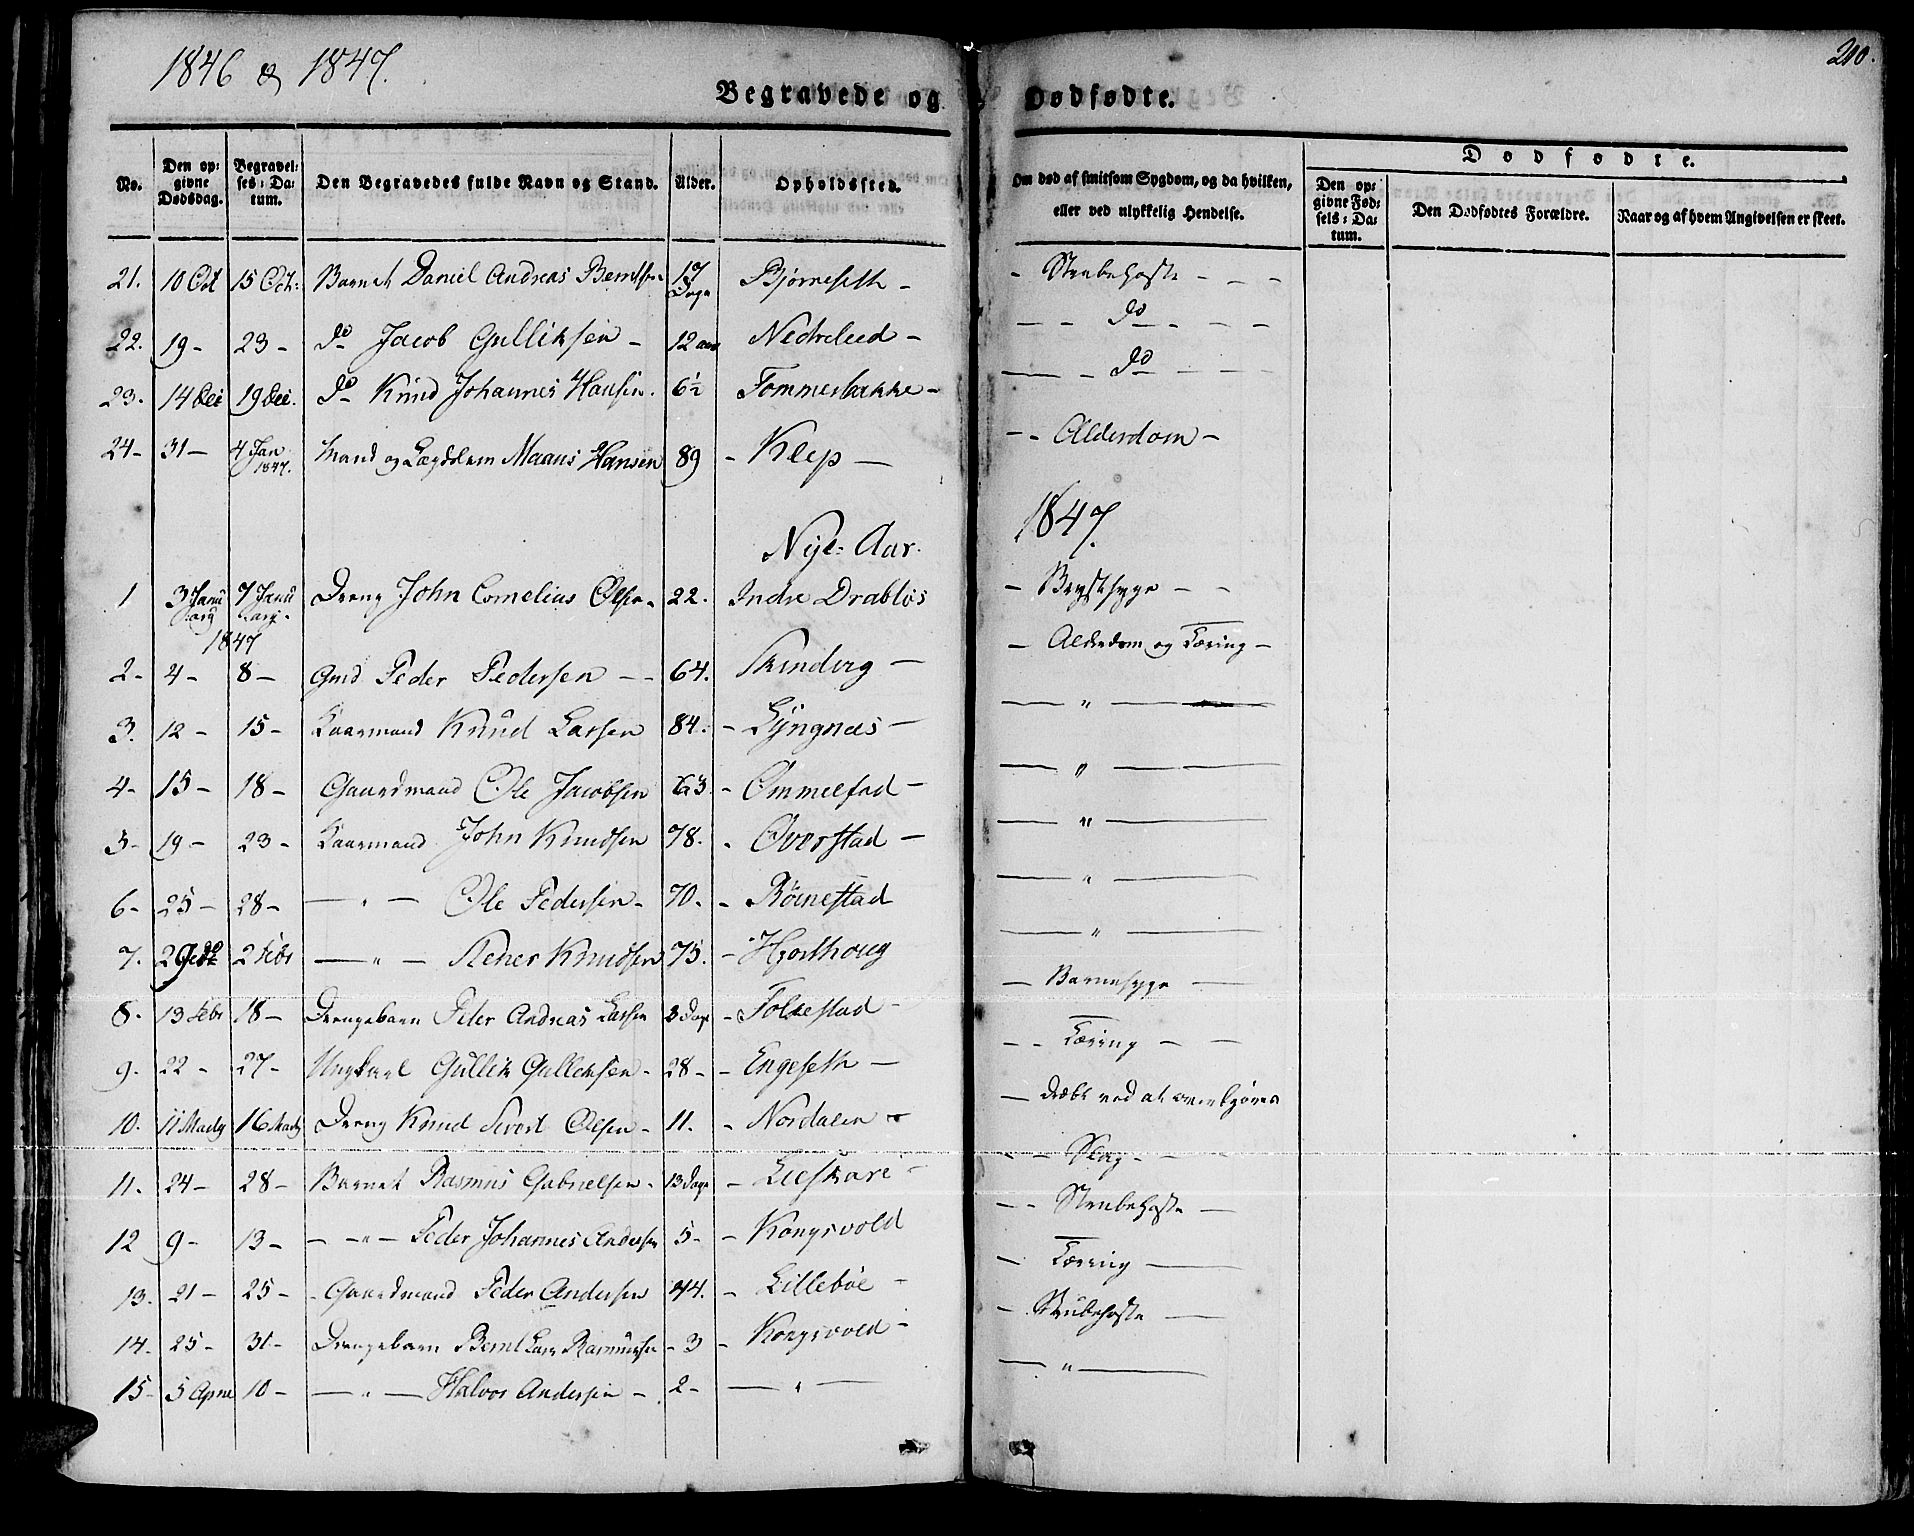 1846 & 1847.
210.
Begravede og Dødfødte.
No.
Den op-
givne
Dødsdag.
Begravel-
ses-Da-
tum.
Den Begravedes fulde Navn og Stand.
Alder.
Opholdssted.
Om død af smitsom Sygdom, og da hvilken,
eller ved ulykkelig Hendelse.
Dødfødte.
Den op-
givne Fød-
sels-Da-
tum.
Den Dødfødtes Forældre.
Naar og af hvem Angivelsen er skeet.
21. 10 Oct 15 Oct. Barnet Daniel Andreas Berntsen 17 Dage Bjørneseth - - Strubehoste - - -
22. 19 - 23 - do Jacob Gulliksen - 12 aar Nedreleed - - - do - - -
23. 14 Dec 19 Dec. do Knud Johannes Hansen. 6½ Tommesbakke - - - do - - -
24 - 31 - 4 Jan 1847. Mand og Lægdslem Maans Hansen 89 - Klep - - - Alderdom -
Nyt- Aar. 1847.
1 3 Janu 7 Janu Dreng John Cornelius Olsen. 22. Indre Drabløs - Brystsyge - -
1847
2 - 4 - 8 - Gmd. Peder Pedersen - - 64. Strandvig - - Alderdom og Tæring -
3. 12 - 15 - Kaarmand Knud Larsen 84. - Lyngnes - - " -
4 - 15 - 18 - Gaardmand Ole Jacobsen 63. - Ommelstad - - " -
5 - 19 - 23 - Kaarmand John Knudsen 78. - Overstad - - " -
6 - 25 - 28 - - " - Ole Pedersen - 70. - Rørnestad - " -
7. 29 do 2 Febr - " - Knudsen 75. - Hjorthoug - " -
8. 13 Febr 18 - Drengebarn Peter Andreas Larsen 8 Dage - Folkestad - - Barnesyge -
9. 22 - 27 - Ungkarl Gullik Gulliksen - 28 - - Engeseth - - - Tæring - -
10. 11 Marty 16 Marty Dreng Knud Sivert Olsen - 11. - Nordalen - - dræbt ved at overkjøres
11. 24 - 28 - Barnet Rasmus Gabrielsen - 13 Dage - Lieskare - - - Slag - -
12 9 - 13 - - " - Peder Johannes Andersen 5 - - Kongsvold - - Strubehoste -
13. 21 - 25 - - Gaardmand Peder Andersen 44. - Lillebøe - - Tæring -
14. 25 - 31 - Drengebarn Bernt Lars Rasmussen - 3 - Kongsvold - - Strubehoste -
15 - 5 April 10 - - " - Halvor Andersen - 2 - - " - - " -